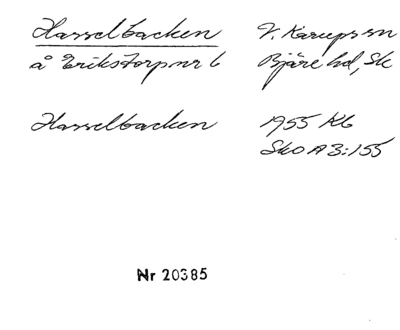 Hasselbacken V. Karups sn
å Erikstorp nr 6 Bjäre hd, Sk
Hasselbacken 1955 Kb
Sko A 3:155
Nr 20385